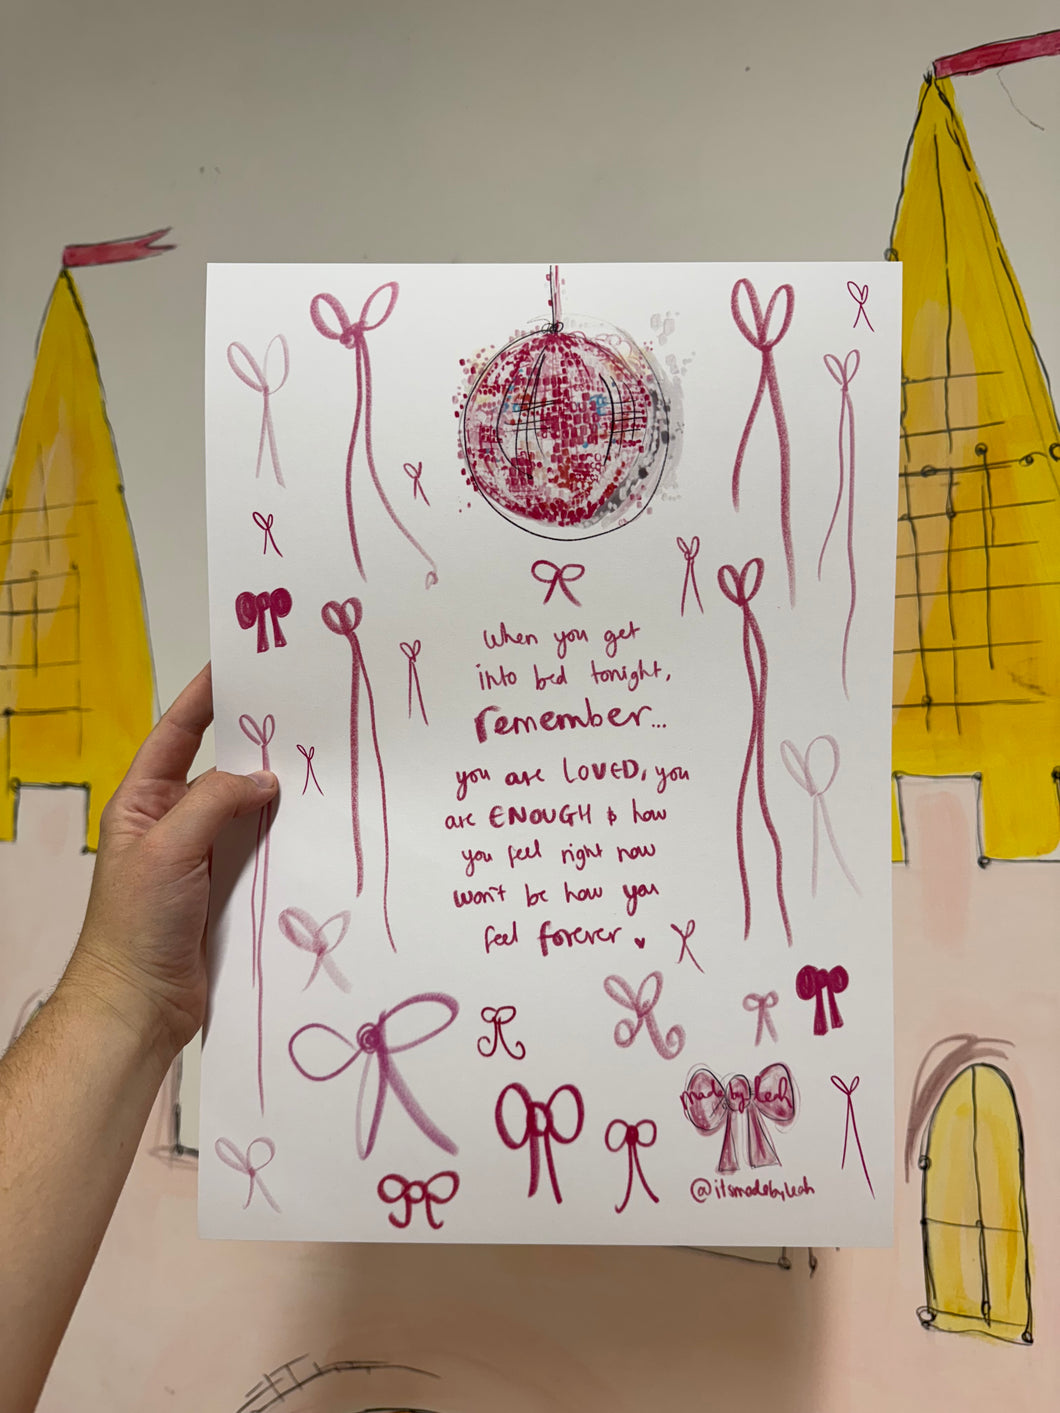 When you get
into bed tonight,
remember...
you are LOVED, you
are ENOUGH & how
you feel right now
won't be how you
feel forever
made by leah
@itsmadebyleah